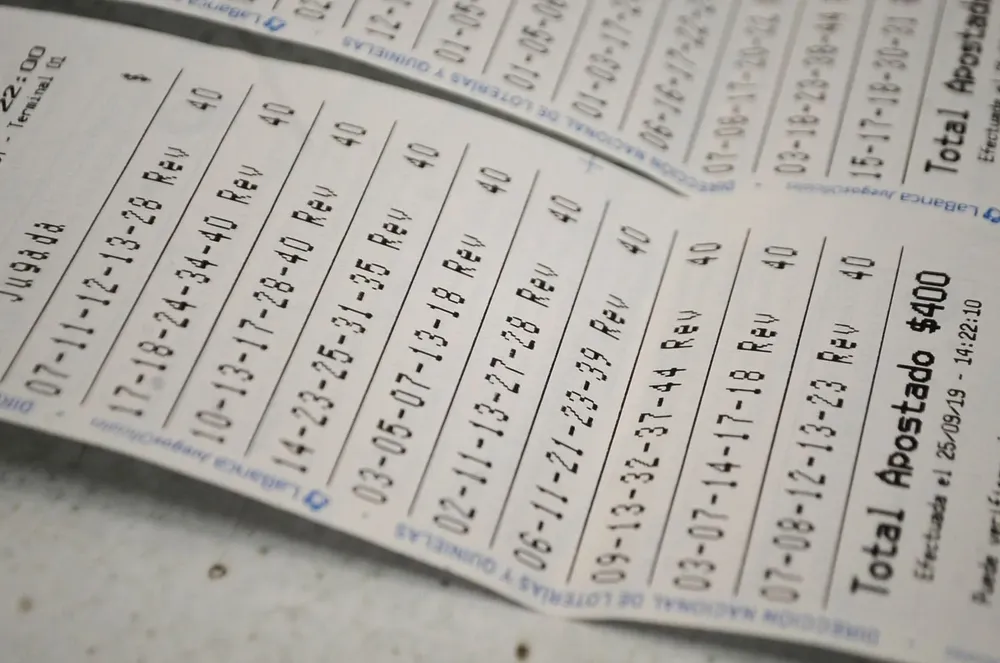 22:00
- Terminal 01
Jugada $
07-11-12-13-28 Rev 40
17-18-24-34-40 Rev 40
10-13-17-28-40 Rev 40
14-23-25-31-35 Rev 40
03-05-07-13-18 Rev 40
02-11-13-27-28 Rev 40
06-11-21-23-39 Rev 40
09-13-32-37-44 Rev 40
03-07-14-17-18 Rev 40
07-08-12-13-23 Rev 40
Total Apostado $400
Efectuada el 25/09/19 - 14:22:10
LaBanca JuegosOficial
DIRECCIÓN NACIONAL DE LOTERÍAS Y QUINIELAS
01-05-
01-05-06
01-03-17-2
06-16-17-22-
07-08-17-20-21
03-18-23-38-44
15-17-18-30-31
Total Apostad
DIRECCIÓN NACIONAL DE LOTERÍAS Y QUINIELAS
LaBanca
LaBanca JuegosOficial